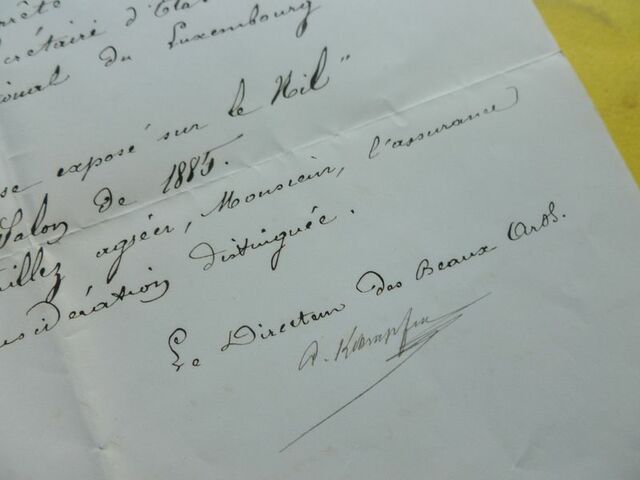 rrêté
crétaire d'Etat
ional du Luxembourg
se exposé sur le Nil"
Salon de 1885.
illez agréer, Monsieur, l'assurance
nsidération distinguée.
Le Directeur des Beaux Arts.
A. Kaempfen